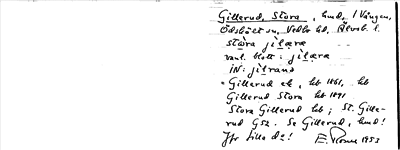 Gillerud, Stora, hmd, i Vången,
Ödsköts sn, Vedbo hd, Älvsb. l.
stòra jìlære
vanl. blott: jìlære
iN: jìlrans
= Gillerud ek, kb 1861, kb
Gillerud Stora kb 1891
Stora Gillerud kb; St. Gille-
rud Gsz. Se Gillerud, hmd!
Jfr Lilla da!
E. 1953